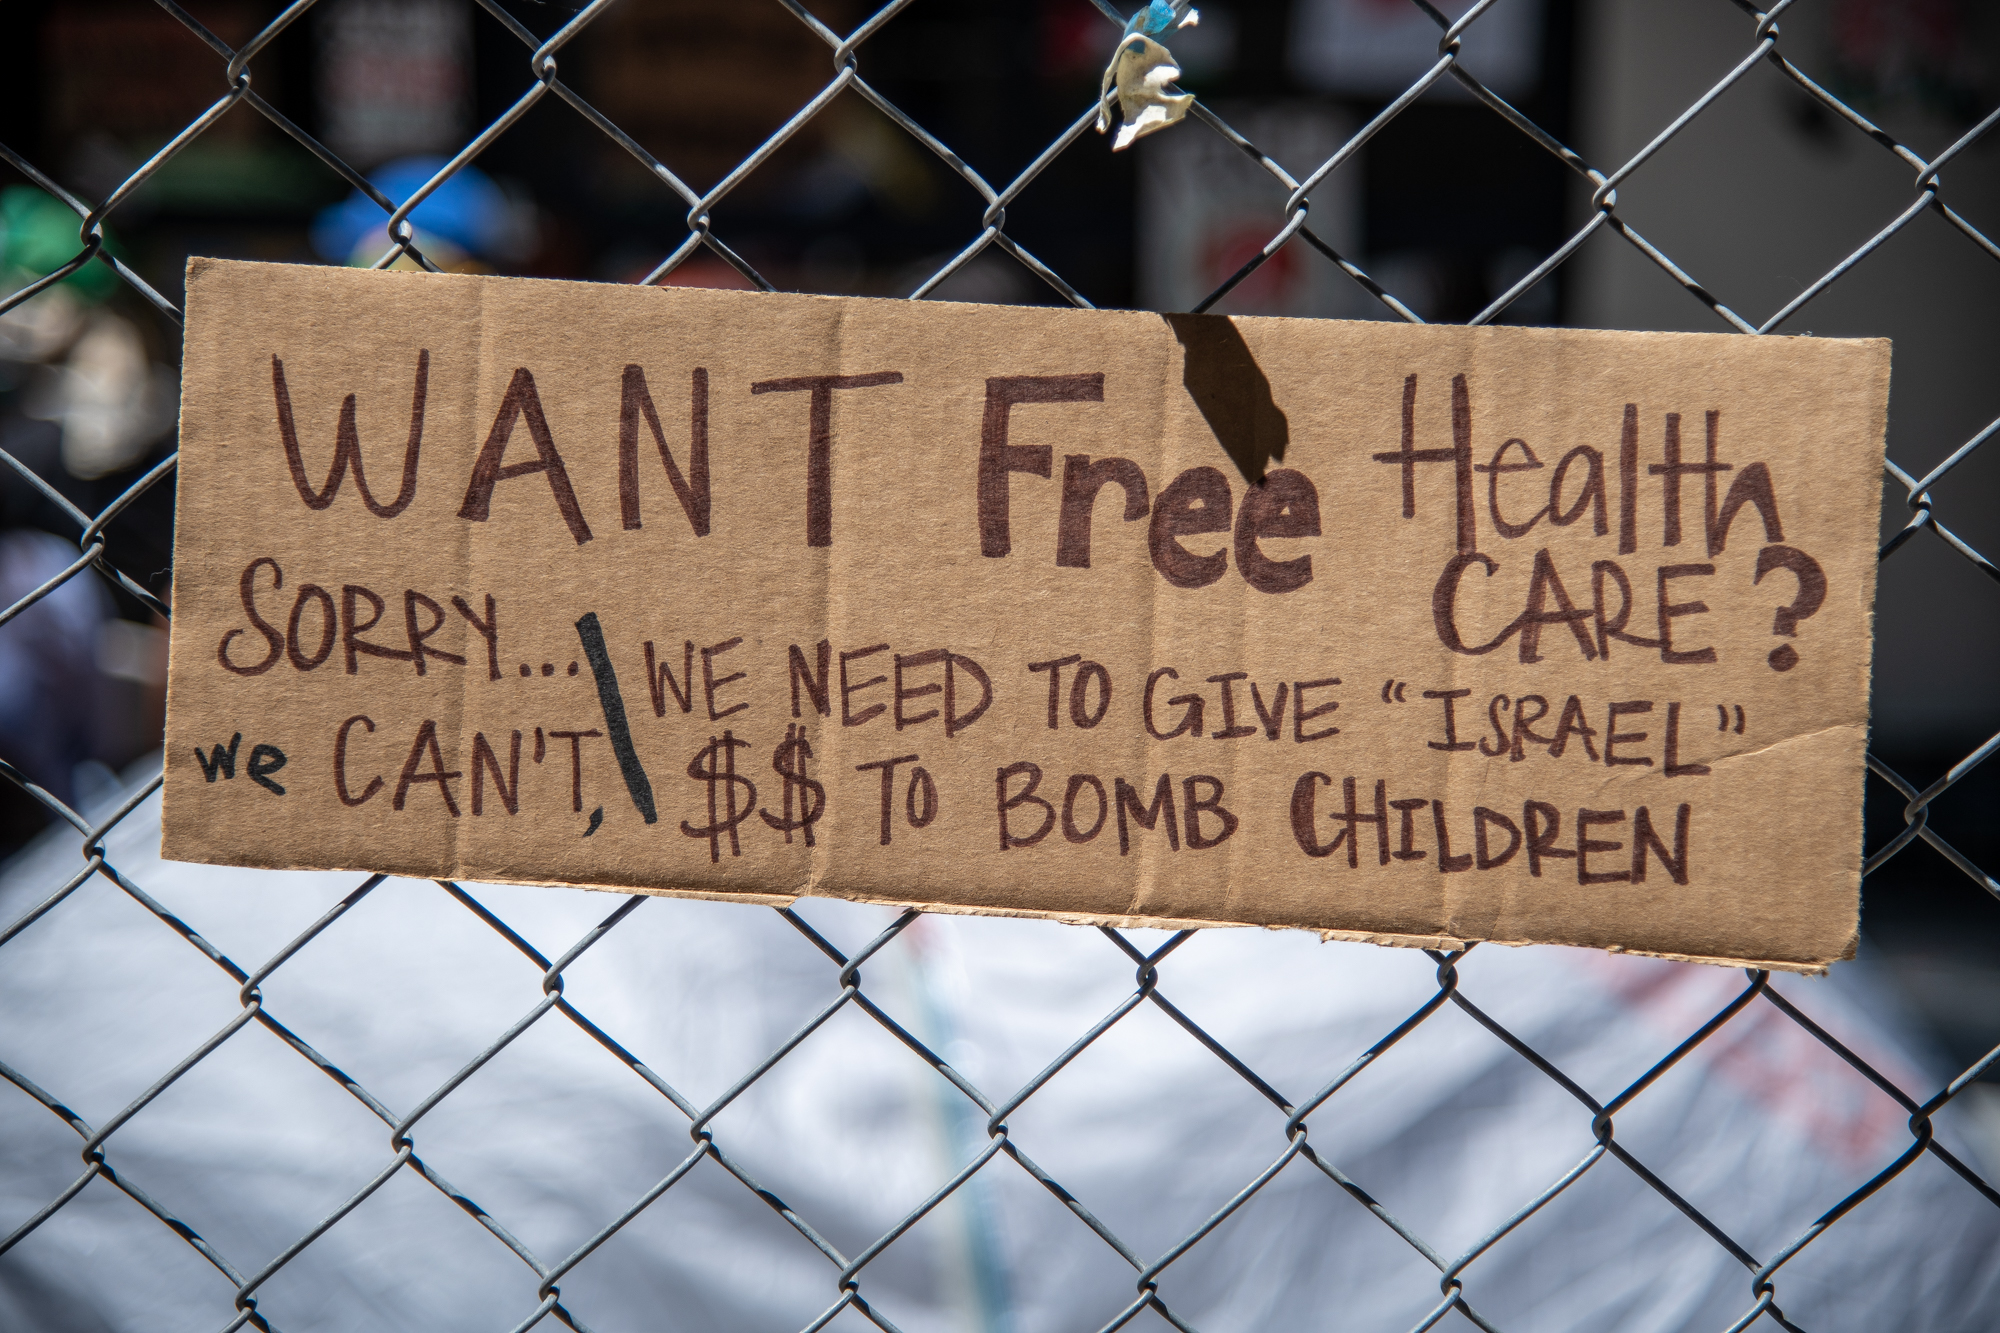 WANT Free Health
CARE?
SORRY...
we CAN'T,
WE NEED TO GIVE "ISRAEL"
$$ TO BOMB CHILDREN